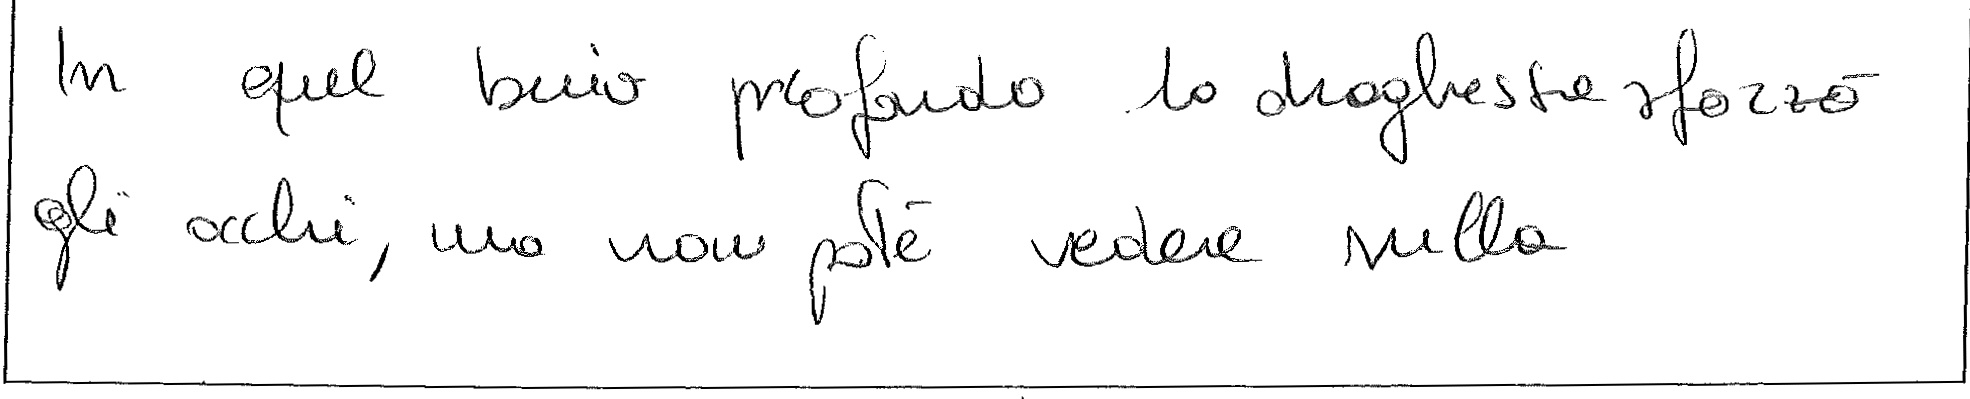 In quel buio profondo la draghessa sforzò
gli occhi, ma non poté vedere nulla